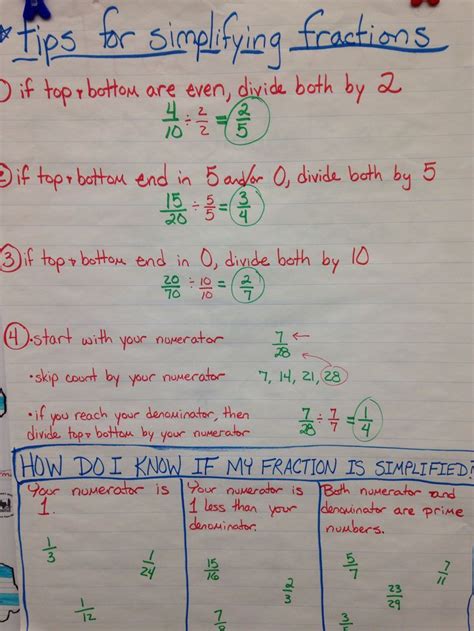 * tips for simplifying fractions
1) if top + bottom are even, divide both by 2
4/10 ÷ 2/2 = 2/5
2) if top + bottom end in 5 and/or 0, divide both by 5
15/20 ÷ 5/5 = 3/4
3) if top + bottom end in 0, divide both by 10
20/70 ÷ 10/10 = 2/7
4) • start with your numerator 7/28 ←
• skip count by your numerator 7, 14, 21, 28
• if you reach your denominator, then
divide top + bottom by your numerator 7/28 ÷ 7/7 = 1/4
HOW DO I KNOW IF MY FRACTION IS SIMPLIFIED?
Your numerator is
1.
1/3
1/24
1/12
Your numerator is
1 less than your
denominator.
15/16
2/3
7/8
Both numerator and
denominator are prime
numbers.
5/7
7/11
23/29
3/5